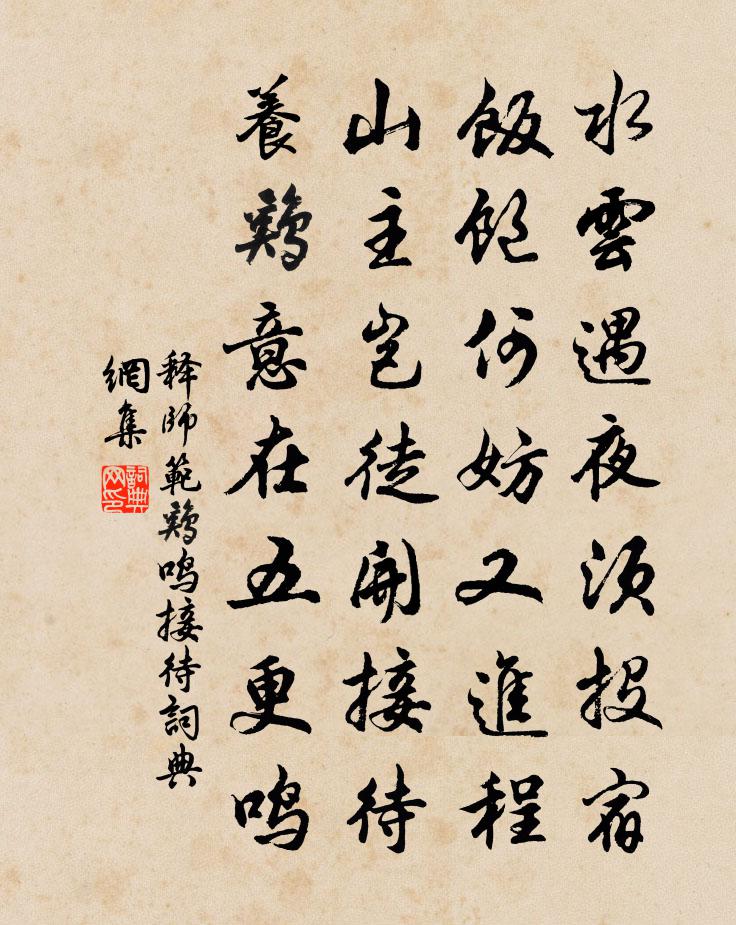 水雲遇夜須投宿
飯飽何妨又進程
山主豈徒開接待
養鷄意在五更鳴
释師範鷄鳴接待詞典
網集
詞典
网印